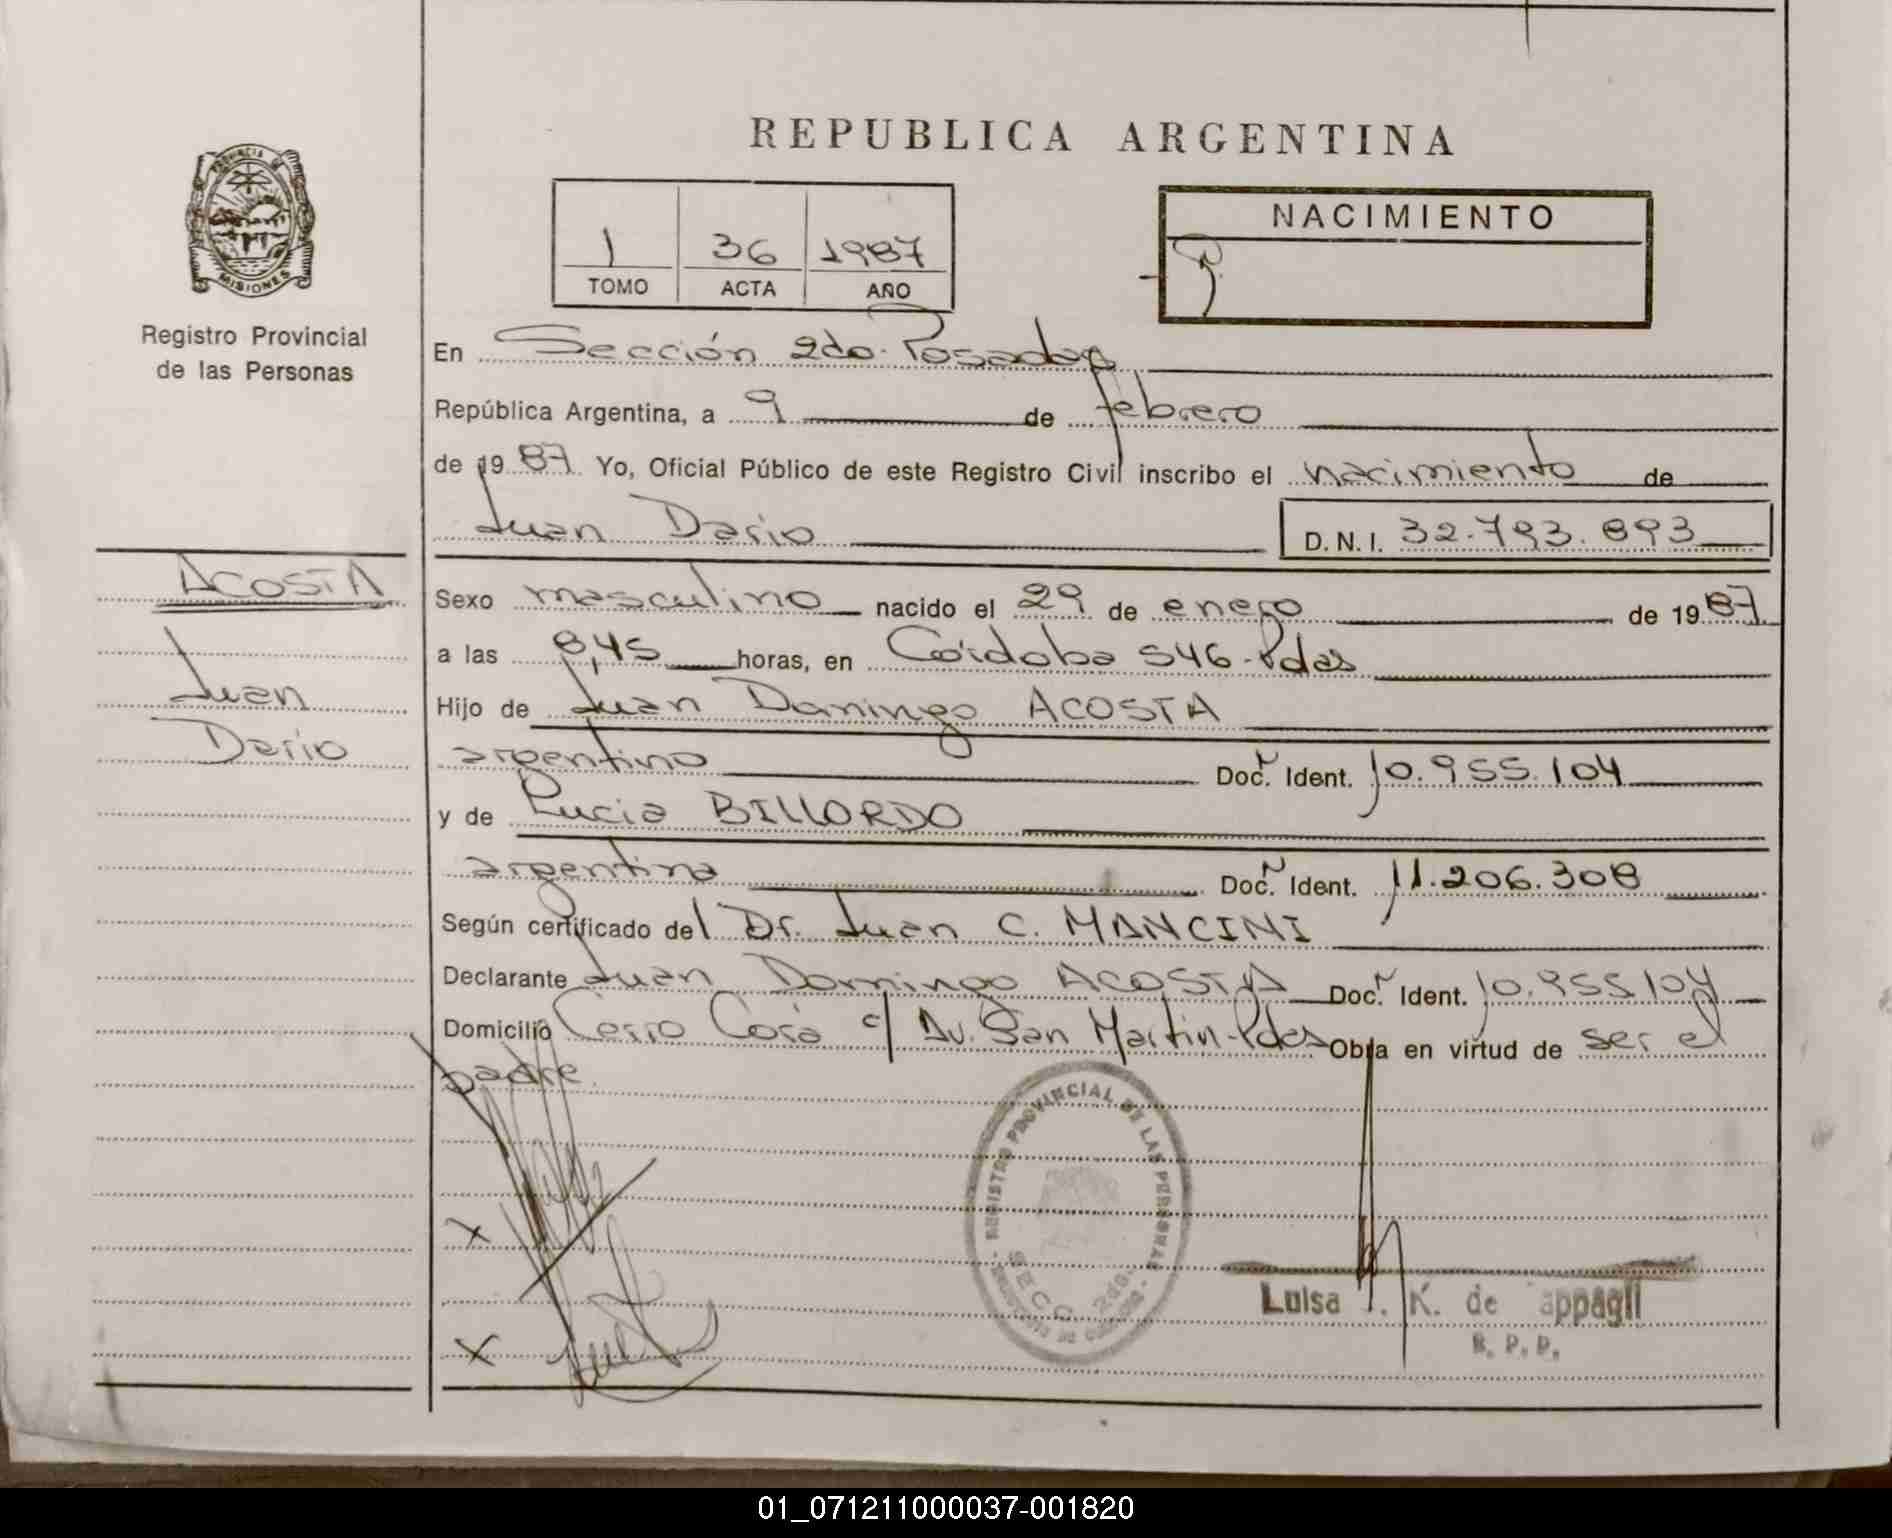 REPUBLICA ARGENTINA
PROVINCIA DE
MISIONES
Registro Provincial
de las Personas
1 36 1987
TOMO ACTA AÑO
NACIMIENTO
En Sección 2da. Posadas
República Argentina, a 9 de febrero
de 1987 Yo, Oficial Público de este Registro Civil inscribo el nacimiento de
Juan Dario D.N.I. 32.793.893
ACOSTA
Juan
Dario
Sexo masculino nacido el 29 de enero de 1987
a las 8,45 horas, en Córdoba 546-Pdas
Hijo de Juan Domingo ACOSTA
argentino Doc. Ident. 10.955.104
y de Lucia BILLORDO
argentina Doc. Ident. 11.206.308
Según certificado del Dr. Juan C. MANCINI
Declarante Juan Domingo ACOSTA Doc. Ident. 10.955.104
Domicilio Cerro Corá c/ Av. San Martín-Pdas Obra en virtud de ser el
padre.
REGISTRO PROVINCIAL DE LAS PERSONAS
SECC. 2da.
X
X
Luisa K. de appagli
01_071211000037-001820